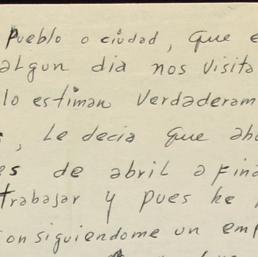 Pueblo o ciudad, que e
algun dia nos visita
lo estiman verdaderam
, Le decia que aho
es de abril a fina
trabajar y pues he
onsiguiendome un em